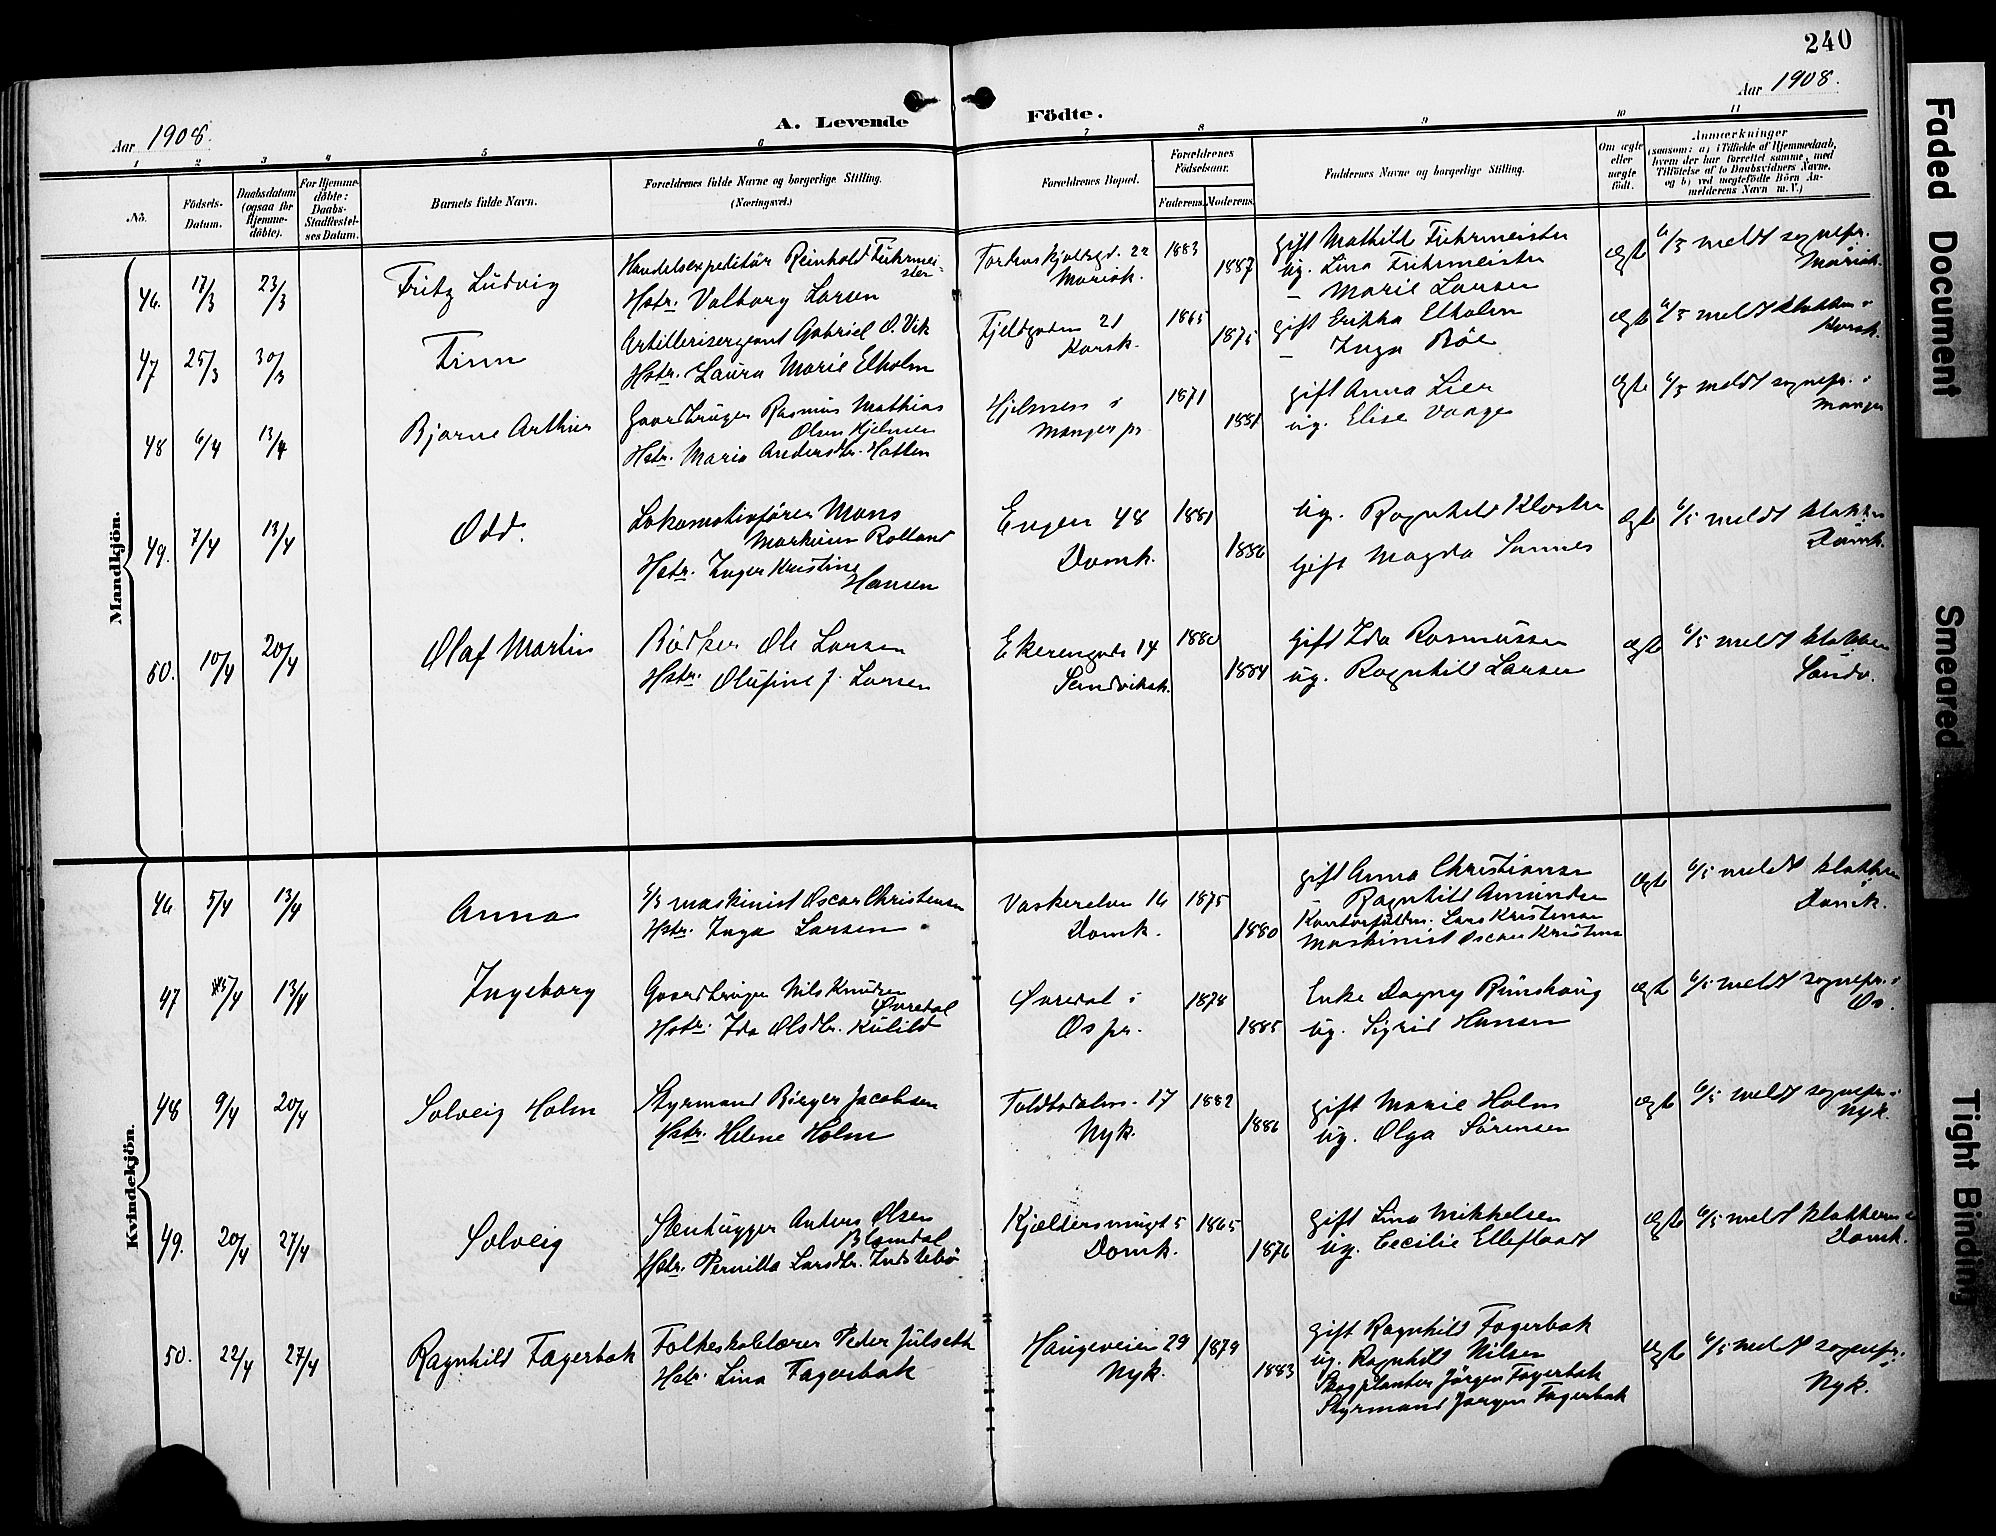 240
Aar 1908.
Aar 1908.
A. Levende Födte.
1 2 3 4 5 6 7 8 9 10 11
No.
Födsels-
Datum.
Daabsdatum
(ogsaa for
Hjemme-
döbte).
For Hjemme-
döbte:
Daabs-
Stadfæstel-
ses Datum.
Barnets fulde Navn.
Forældrenes fulde Navne og borgerlige Stilling.
(Næringsvei.)
Forældrenes Bopæl.
Forældrenes
Födselsaar.
Faderens.
Moderens.
Faddernes Navne og borgerlige Stilling.
Om ægte
eller
uægte
födt.
Anmærkninger
(saasom: a) i Tilfælde af Hjemmedaab,
hvem der har forrettet samme, med
Tilföielse af to Daabsvidners Navne,
og b) ved uægtefödte Börn An-
melderens Navn m. V.)
Mandkjön.
46. 17/3 23/3 Fritz Ludvig
Handelsexpeditör Reinhold Fuhrmei-
ster
Hstr. Valborg Larsen
Tordenskjoldsgd. 22
Mariak.
1883
1887
gift Mathilde Fuhrmeister
ug. Lina Fuhrmeister
— Marie Larsen
ægte
6/5 meldt sognepr.
Mariak.
47 25/3 30/3 Finn
Artillerisergeant Gabriel O. Vik
Hstr. Laura Marie Elholm
Fjeldgaden 21
Korsk.
1865
1875
gift Erikka Elholm
— Inga Böe
ægte
6/5 meldt klokkeren i
Korsk.
48 6/4 13/4 Bjarne Arthur
Gaardbruger Rasmus Mathias
Olsen Hjelmen
Hstr. Maria Andersdtr. Hatten
Hjelmen i
Manger pr.
1871
1881
gift Anna Lier
ug. Elise Vaage
ægte
6/5 meldt sognepr. i
Manger
49. 7/4 13/4 Odd.
Lokomotivförer Mons
Markusen Rolland
Hstr. Inger Kristine
Hansen
Engen 48
Domk.
1881
1886
ug. Ragnhild Kloster
gift Magda Sannes
ægte
6/5 meldt klokken
Domk.
50. 10/4 20/4 Olaf Martin
Bödker Ole Larsen
Hstr. Olufine J. Larsen
Ekerengade 14
Sandviksk.
1880
1884
gift Ida Rasmussen
ug. Ragnhild Larsen
ægte
6/5 meldt klokken
Sandv.
Kvindekjön.
46 5/4 13/4 Anna
maskinist Oscar Christensen
Hstr. Inga Larsen
Vaskerelven 16
Domk.
1875
1880
gift Anna Christiansen
Ragnhild Amundsen
Kontorfuldm. Lars Kristensen
Maskinist Oscar Kristensen
ægte
6/5 meldt klokkeren
Domk.
47 5/4 13/4 Ingeborg
Gaardbruger Nils Knutsen
Øvredal
Hstr. Ida Olsdtr. Kulild
Øvredal i
Os pr.
1874
1885
Enke Dagny Runshaug
ug. Sigrid Hansen
ægte
6/5 meldt sognepr. i
Os.
48 9/4 20/4 Solveig Holm
Styrmand Birger Jacobsen
Hstr. Helene Holm
Toldbodalm. 17
Nyk.
1882
1886
gift Marie Holm
ug. Olga Sörensen
ægte
6/5 meldt sognepr. i
Nyk.
49. 20/4 27/4 Solveig
Stenhugger Anders Olsen
Blomdal
Hstr. Pernilla Larsdtr. Indstebö
Kjældersmuget 5
Domk.
1865
1876
gift Lina Mikkelsen
ug. Cecilie Elleflaadt
ægte
6/5 meldt klokkeren i
Domk.
50. 22/4 27/4 Ragnhild Fagerbak
Folkeskolelærer Peder Julseth
Hstr. Lina Fagerbak
Haugeveien 29
Nyk.
1879
1883
gift Ragnhild Fagerbak
ug. Ragnhild Nilsen
Skogplanter Jörgen Fagerbak
Styrmand Jörgen Fagerbak
ægte
6/5 meldt sognepr. i
Nyk.
Faded Document
Smeared
Tight Binding